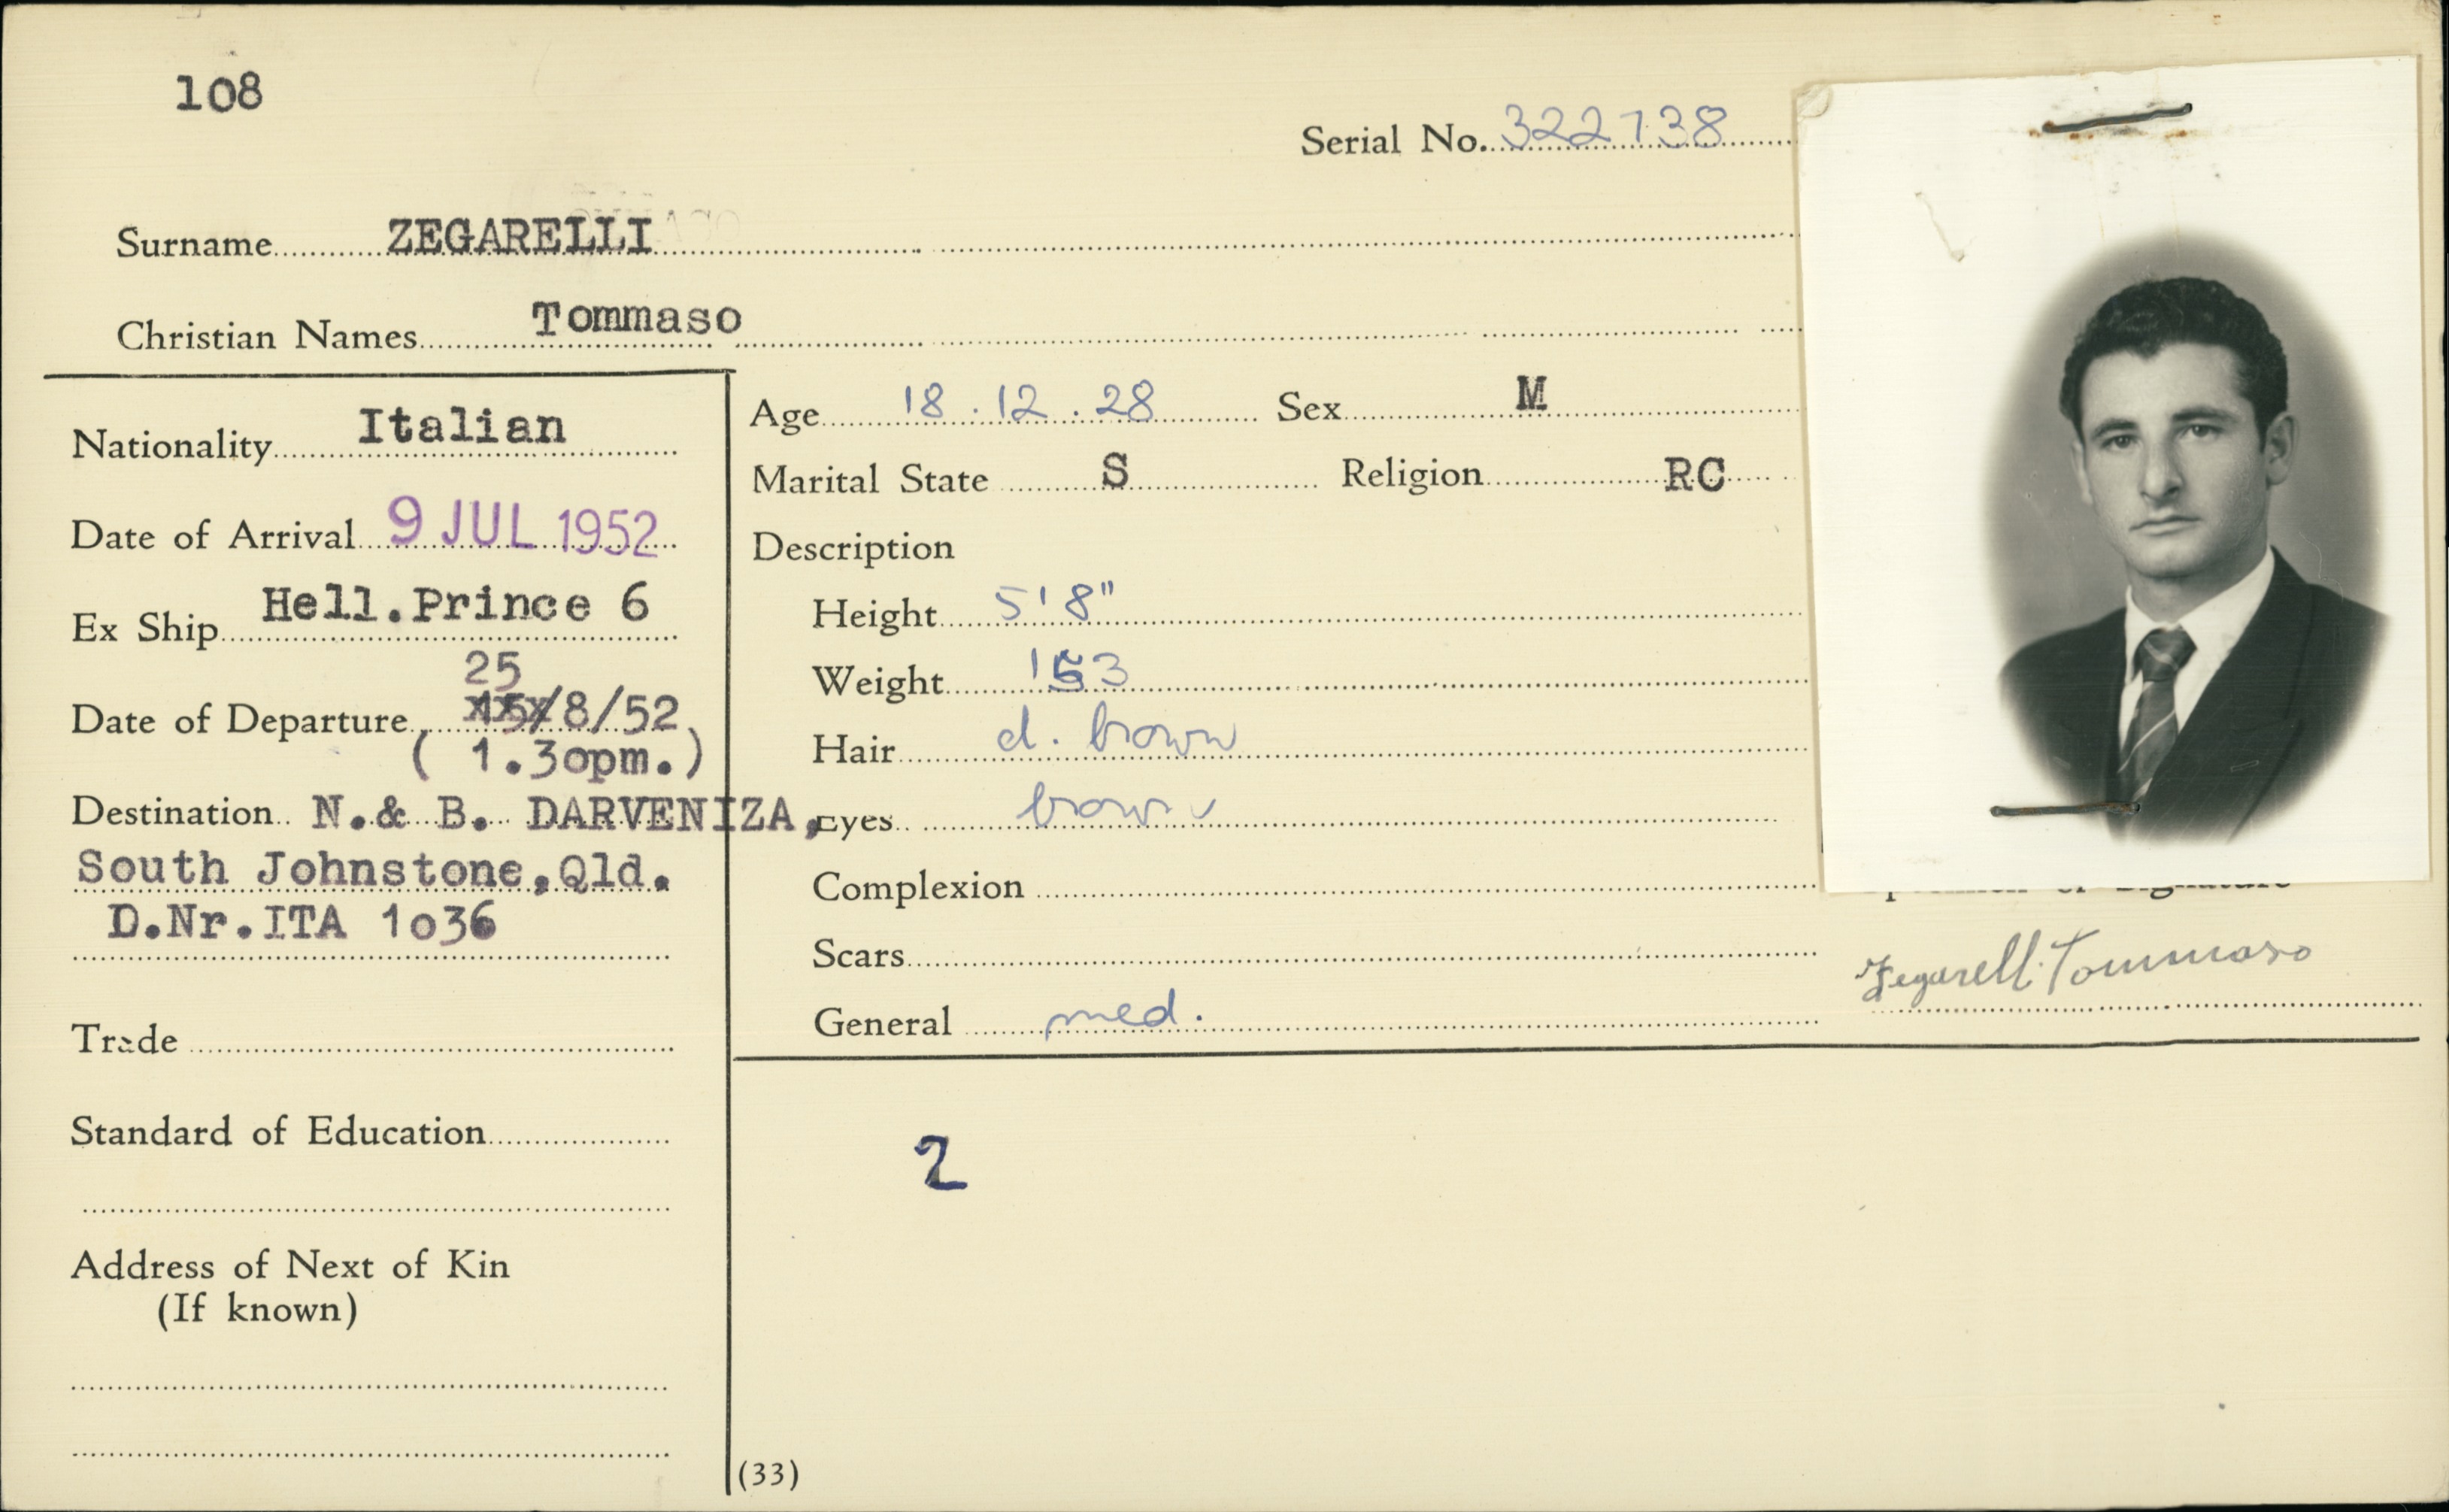 108
Serial No. 322738
Surname ZEGARELLI
Christian Names Tommaso
Nationality Italian
Date of Arrival 9 JUL 1952
Ex Ship Hell.Prince 6
25
Date of Departure /8/52
( 1.30pm.)
Destination N.& B. DARVENIZA,
South Johnstone,Qld.
D.Nr.ITA 1036
Trade
Standard of Education
Address of Next of Kin
(If known)
Age 18.12.28 Sex M
Marital State S Religion RC
Description
Height 5'8"
Weight 153
Hair d. brown
Eyes brown
Complexion
Scars
General med.
of Signature
Zegarelli Tommaso
2
(33)